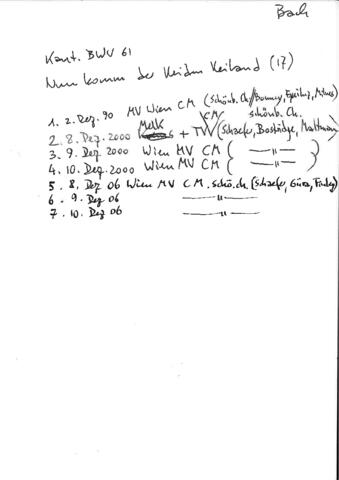 Bach
Kant. BWV 61
Nun komm der Heiden Heiland (17)
1. 2. Dez. 90 MV Wien CM (Schönb. Ch./Bonney,
CM schönb. Ch.
2. 8. Dez. 2000 Melk + TV (Schaefer, Bostridge, Maltman)
3. 9. Dez 2000 Wien MV CM { —"— }
4. 10. Dez. 2000 Wien MV CM { —"— }
5. 8. Dez 06 Wien MV CM. schö. ch. (Schaefer, Güra, Finley)
6. 9. Dez 06 —"—
7. 10. Dez 06 —"—